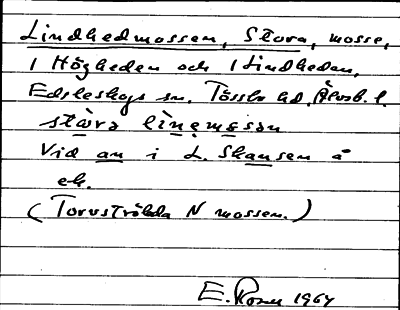 Lindhedmossen, Stora, mosse,
i Högheden och i Lindheden,
Edsleskogs sn. Tössbo hd. Älvsb. l.
stωra linemosən
Vid an i L. Skansen å
ek.
(Torvströbda N mossen.)
E. Rosen 1964